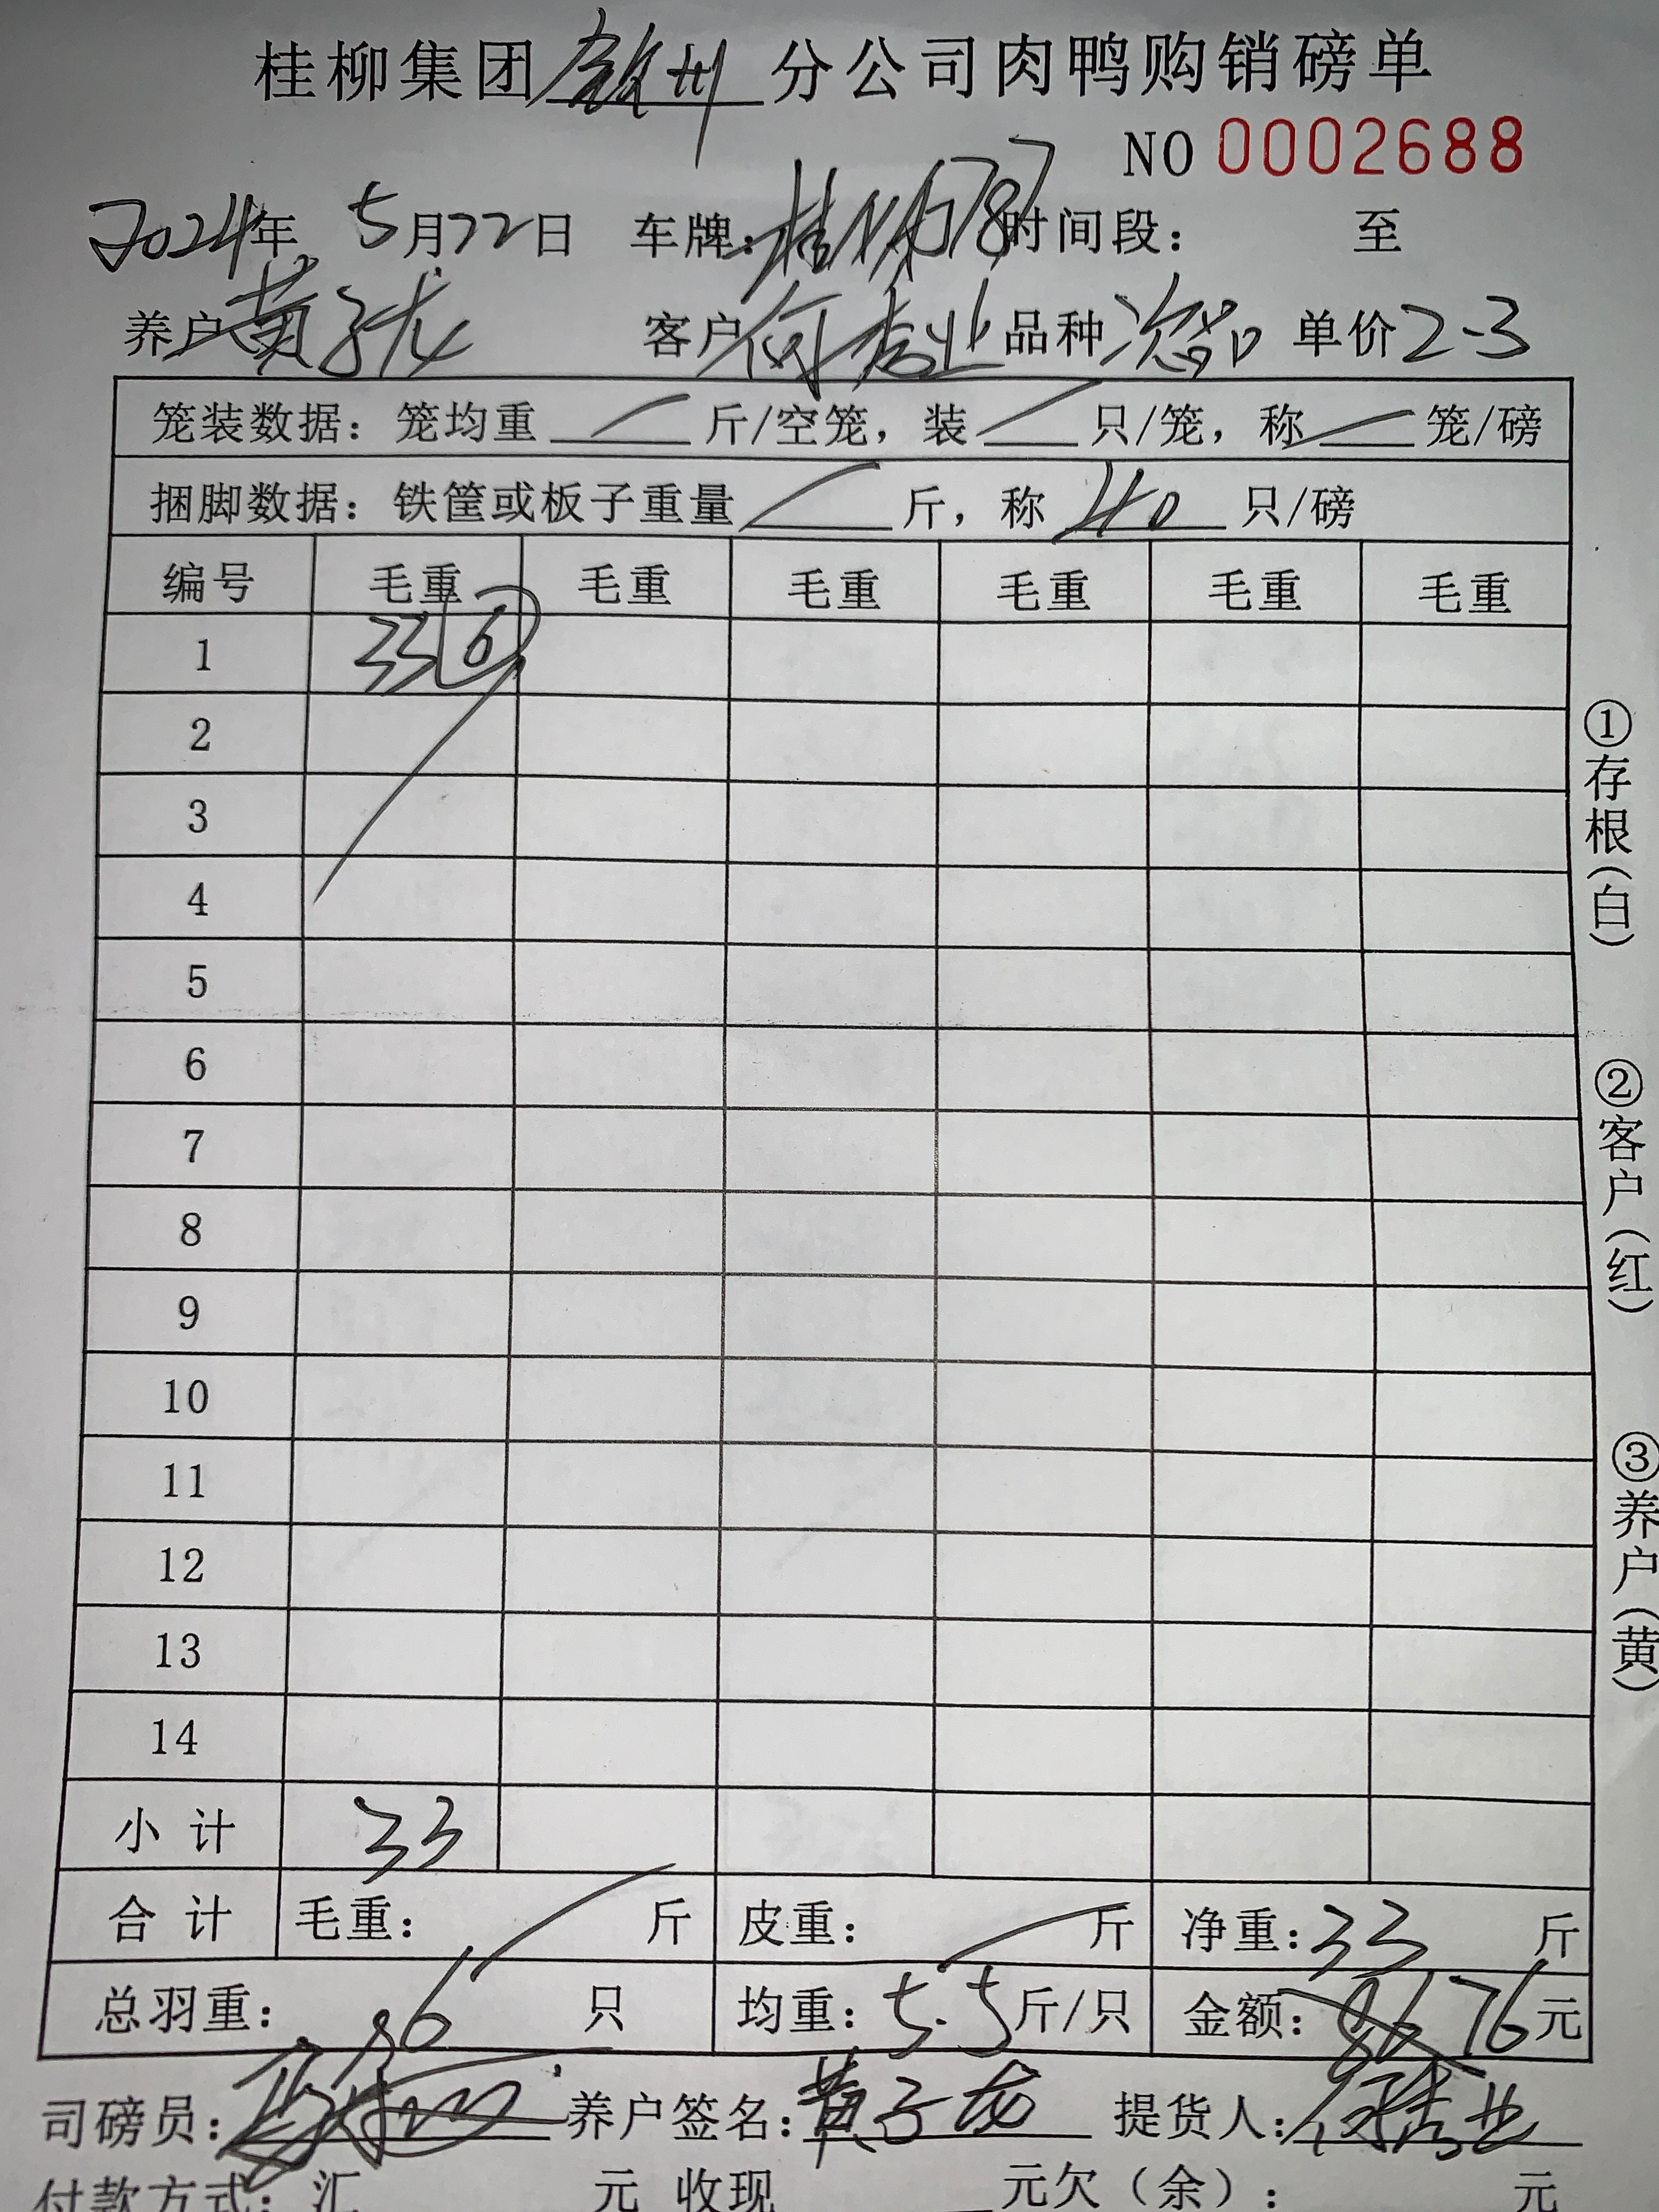 桂柳集团钦州分公司肉鸭购销磅单
NO 0002688
2024年 5月22日 车牌：桂 787 时间段： 至
养户 黄子龙 客户 何秀业 品种 次品 单价 2-3
笼装数据：笼均重 斤/空笼，装 只/笼，称 笼/磅
捆脚数据：铁筐或板子重量 斤，称 40 只/磅
编号 毛重 毛重 毛重 毛重 毛重 毛重
1 33 6
2
3
4
5
6
7
8
9
10
11
12
13
14
小计 33
合计 毛重： 斤 皮重： 斤 净重：33 斤
总羽重： 6 只 均重：5.5 斤/只 金额： 76 元
司磅员： 养户签名：黄子龙 提货人：
付款方式：汇 元 收现 元欠（余）： 元
①存根（白）
②客户（红）
③养户（黄）